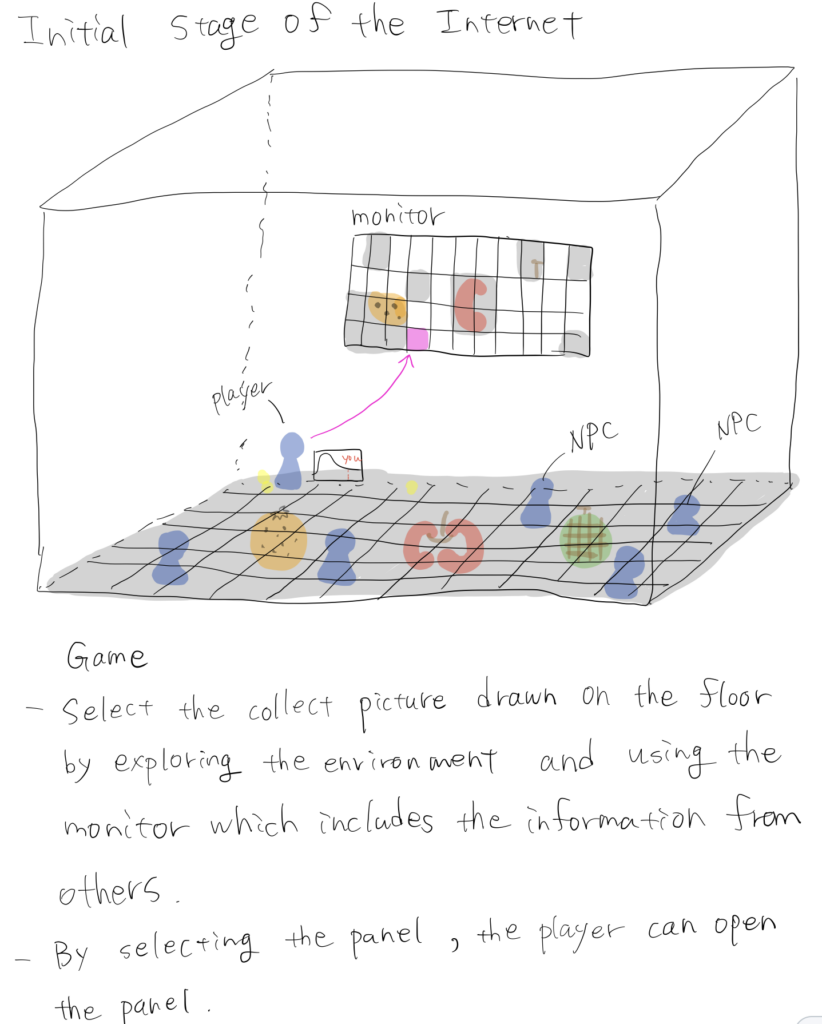 Initial Stage of the Internet
monitor
player
you
NPC
NPC
Game
- Select the collect picture drawn on the floor
by exploring the environment and using the
monitor which includes the information from
others.
- By selecting the panel, the player can open
the panel.